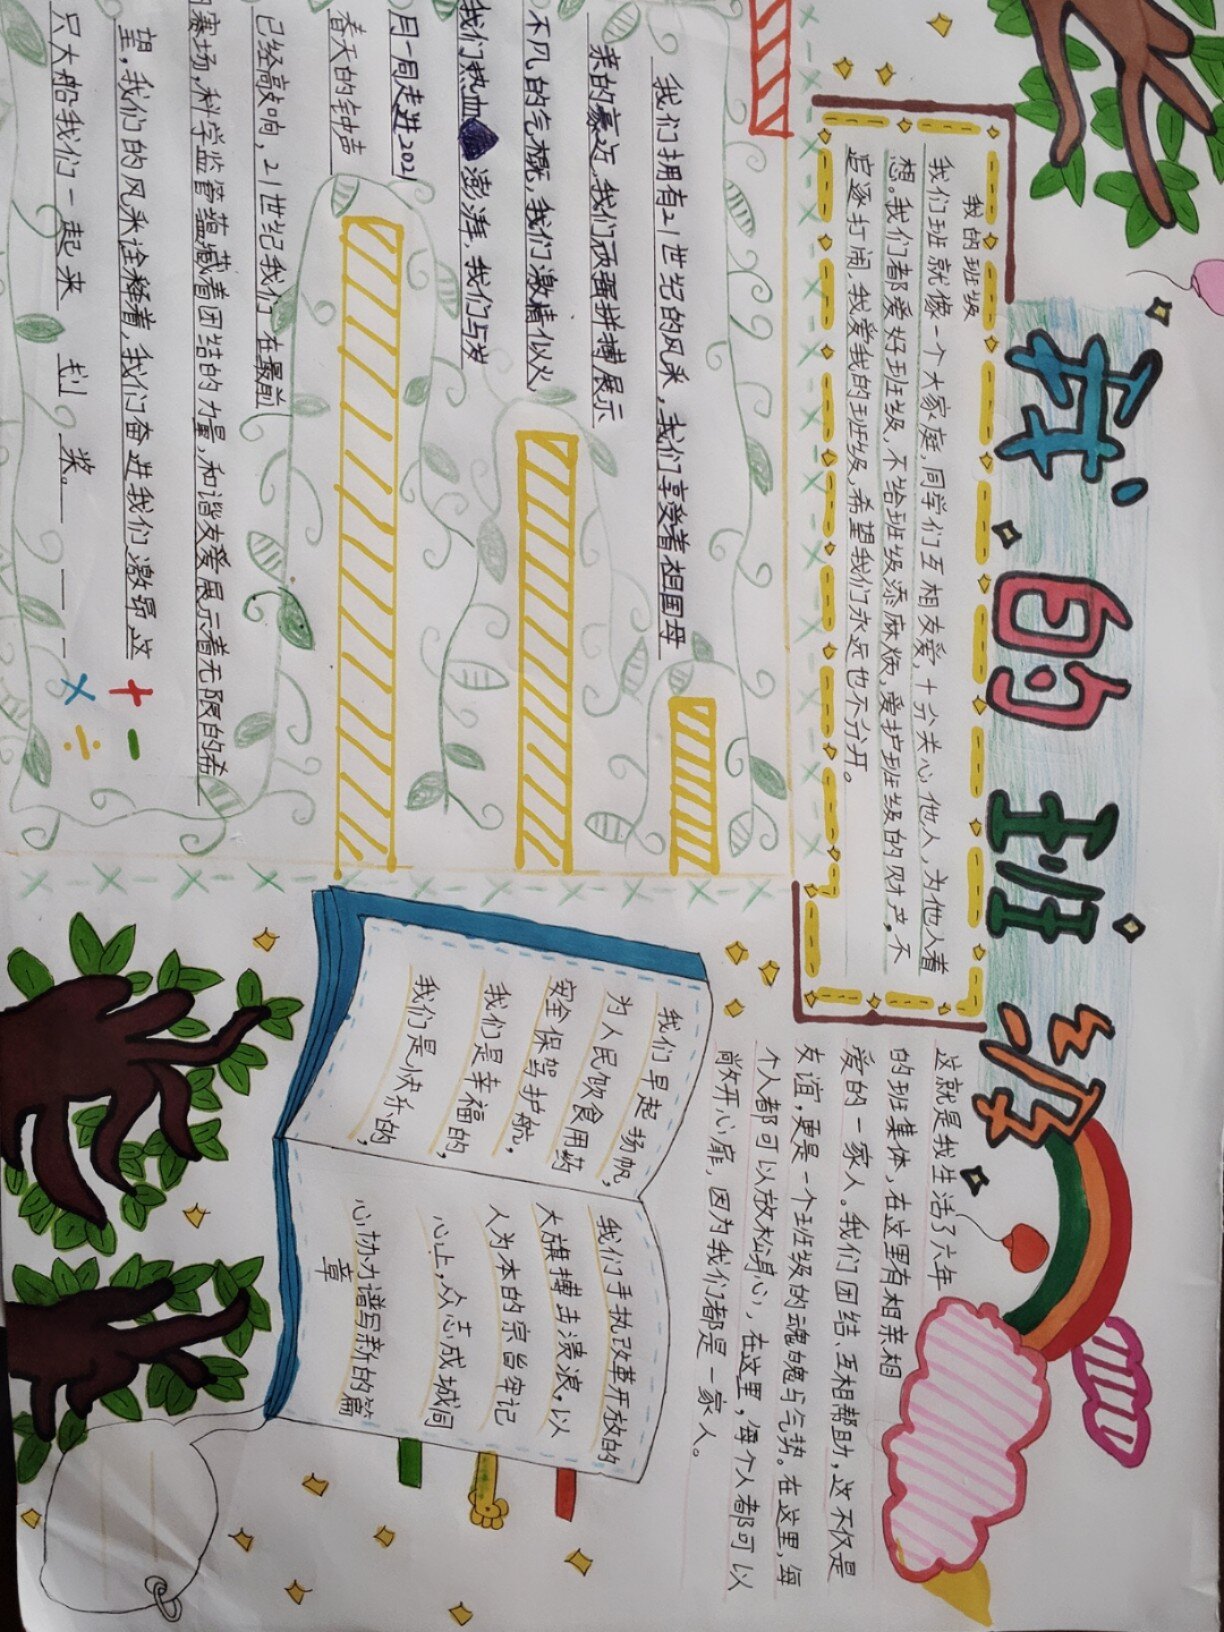 我的班级
我的班级
我们班就像一个大家庭,同学们互相友爱,十分关心他人,为他人着
想。我们都爱好班级,不给班级添麻烦,爱护班级的财产,不
追逐打闹,我爱我的班级,希望我们永远也不分开。
这就是我生活了六年
的班集体,在这里有相亲相
爱的一家人。我们团结、互相帮助,这不仅是
友谊,更是一个班级的魂魄与气势。在这里,每
个人都可以放松身心,在这里,每个人都可以
敞开心扉,因为我们都是一家人。
我们拥有21世纪的风采,我们享受着祖国母
亲的豪迈,我们顽强拼搏展示
不凡的气概,我们激情似火,
我们热血澎湃,我们与岁
月一同走进2021
春天的钟声
已经敲响,21世纪我们在最前
赛场,科学监管蕴藏着团结的力量,和谐友爱展示着无限的希
望,我们的风采诠释着,我们奋进我们激昂这
只大船我们一起来 划 桨。
+ -
× ÷
我们早起扬帆,
为人民饮食用药
安全保驾护航,
我们是幸福的,
我们是快乐的,
我们手执改革开放的
大旗搏击涛浪,以
人为本的宗旨牢记
心上,众志成城同
心协力谱写新的篇
章